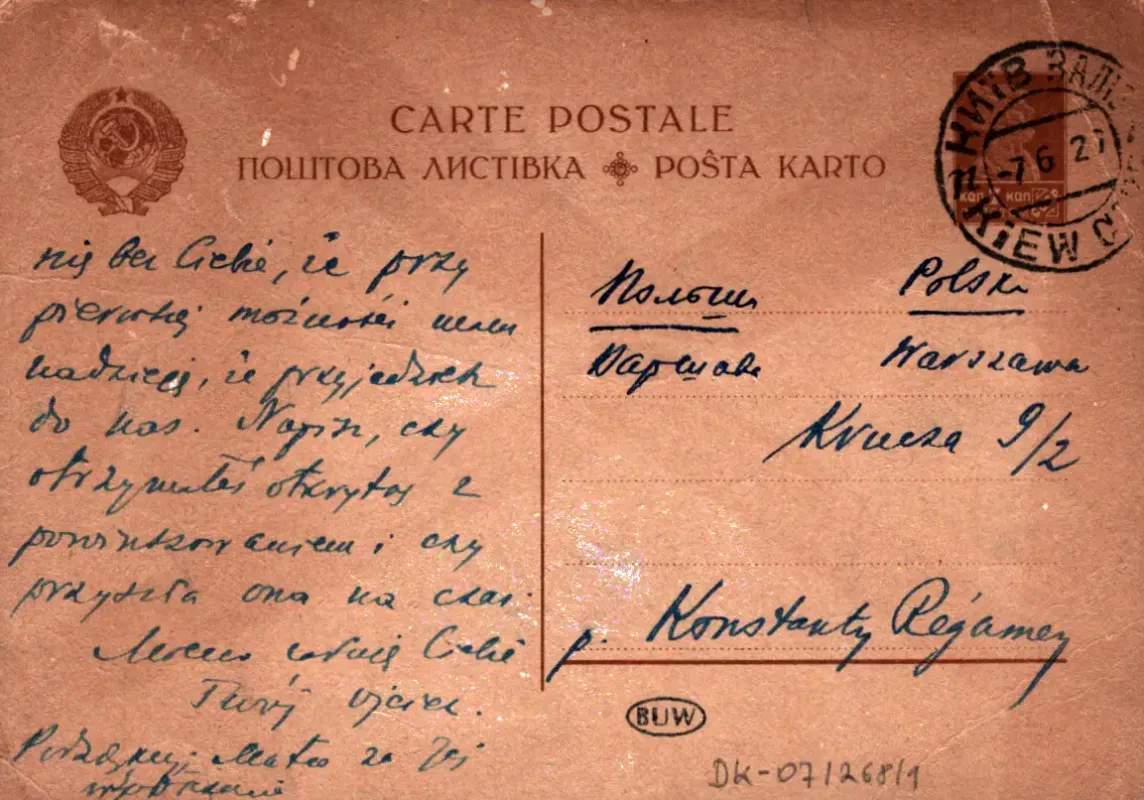 CARTE POSTALE
ПОШТОВА ЛИСТІВКА POŜTA KARTO
КИЇВ ЗАЛІЗ
-7 6 27
KIEW
КОП КОП
nię bez Ciebie, że przy
pierwszej możności mam
nadzieję, że przyjedziesz
do nas. Napisz, czy
otrzymałeś otkrytkę z
powinszowaniem i czy
przyszła ona na czas.
Mocno całuję Ciebie
Twój ojciec.
Podziękuj Matce za Jej
Польша Polska
Варшава Warszawa
Krucza 9/2
p. Konstanty Régamey
BUW
DK-07/268/1